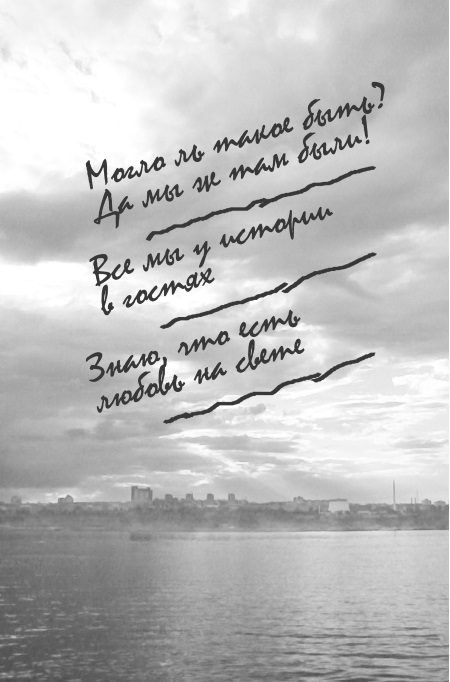 Могло ль такое быть?
Да мы ж там были!
Все мы у истории
в гостях
Знаю, что есть
любовь на свете